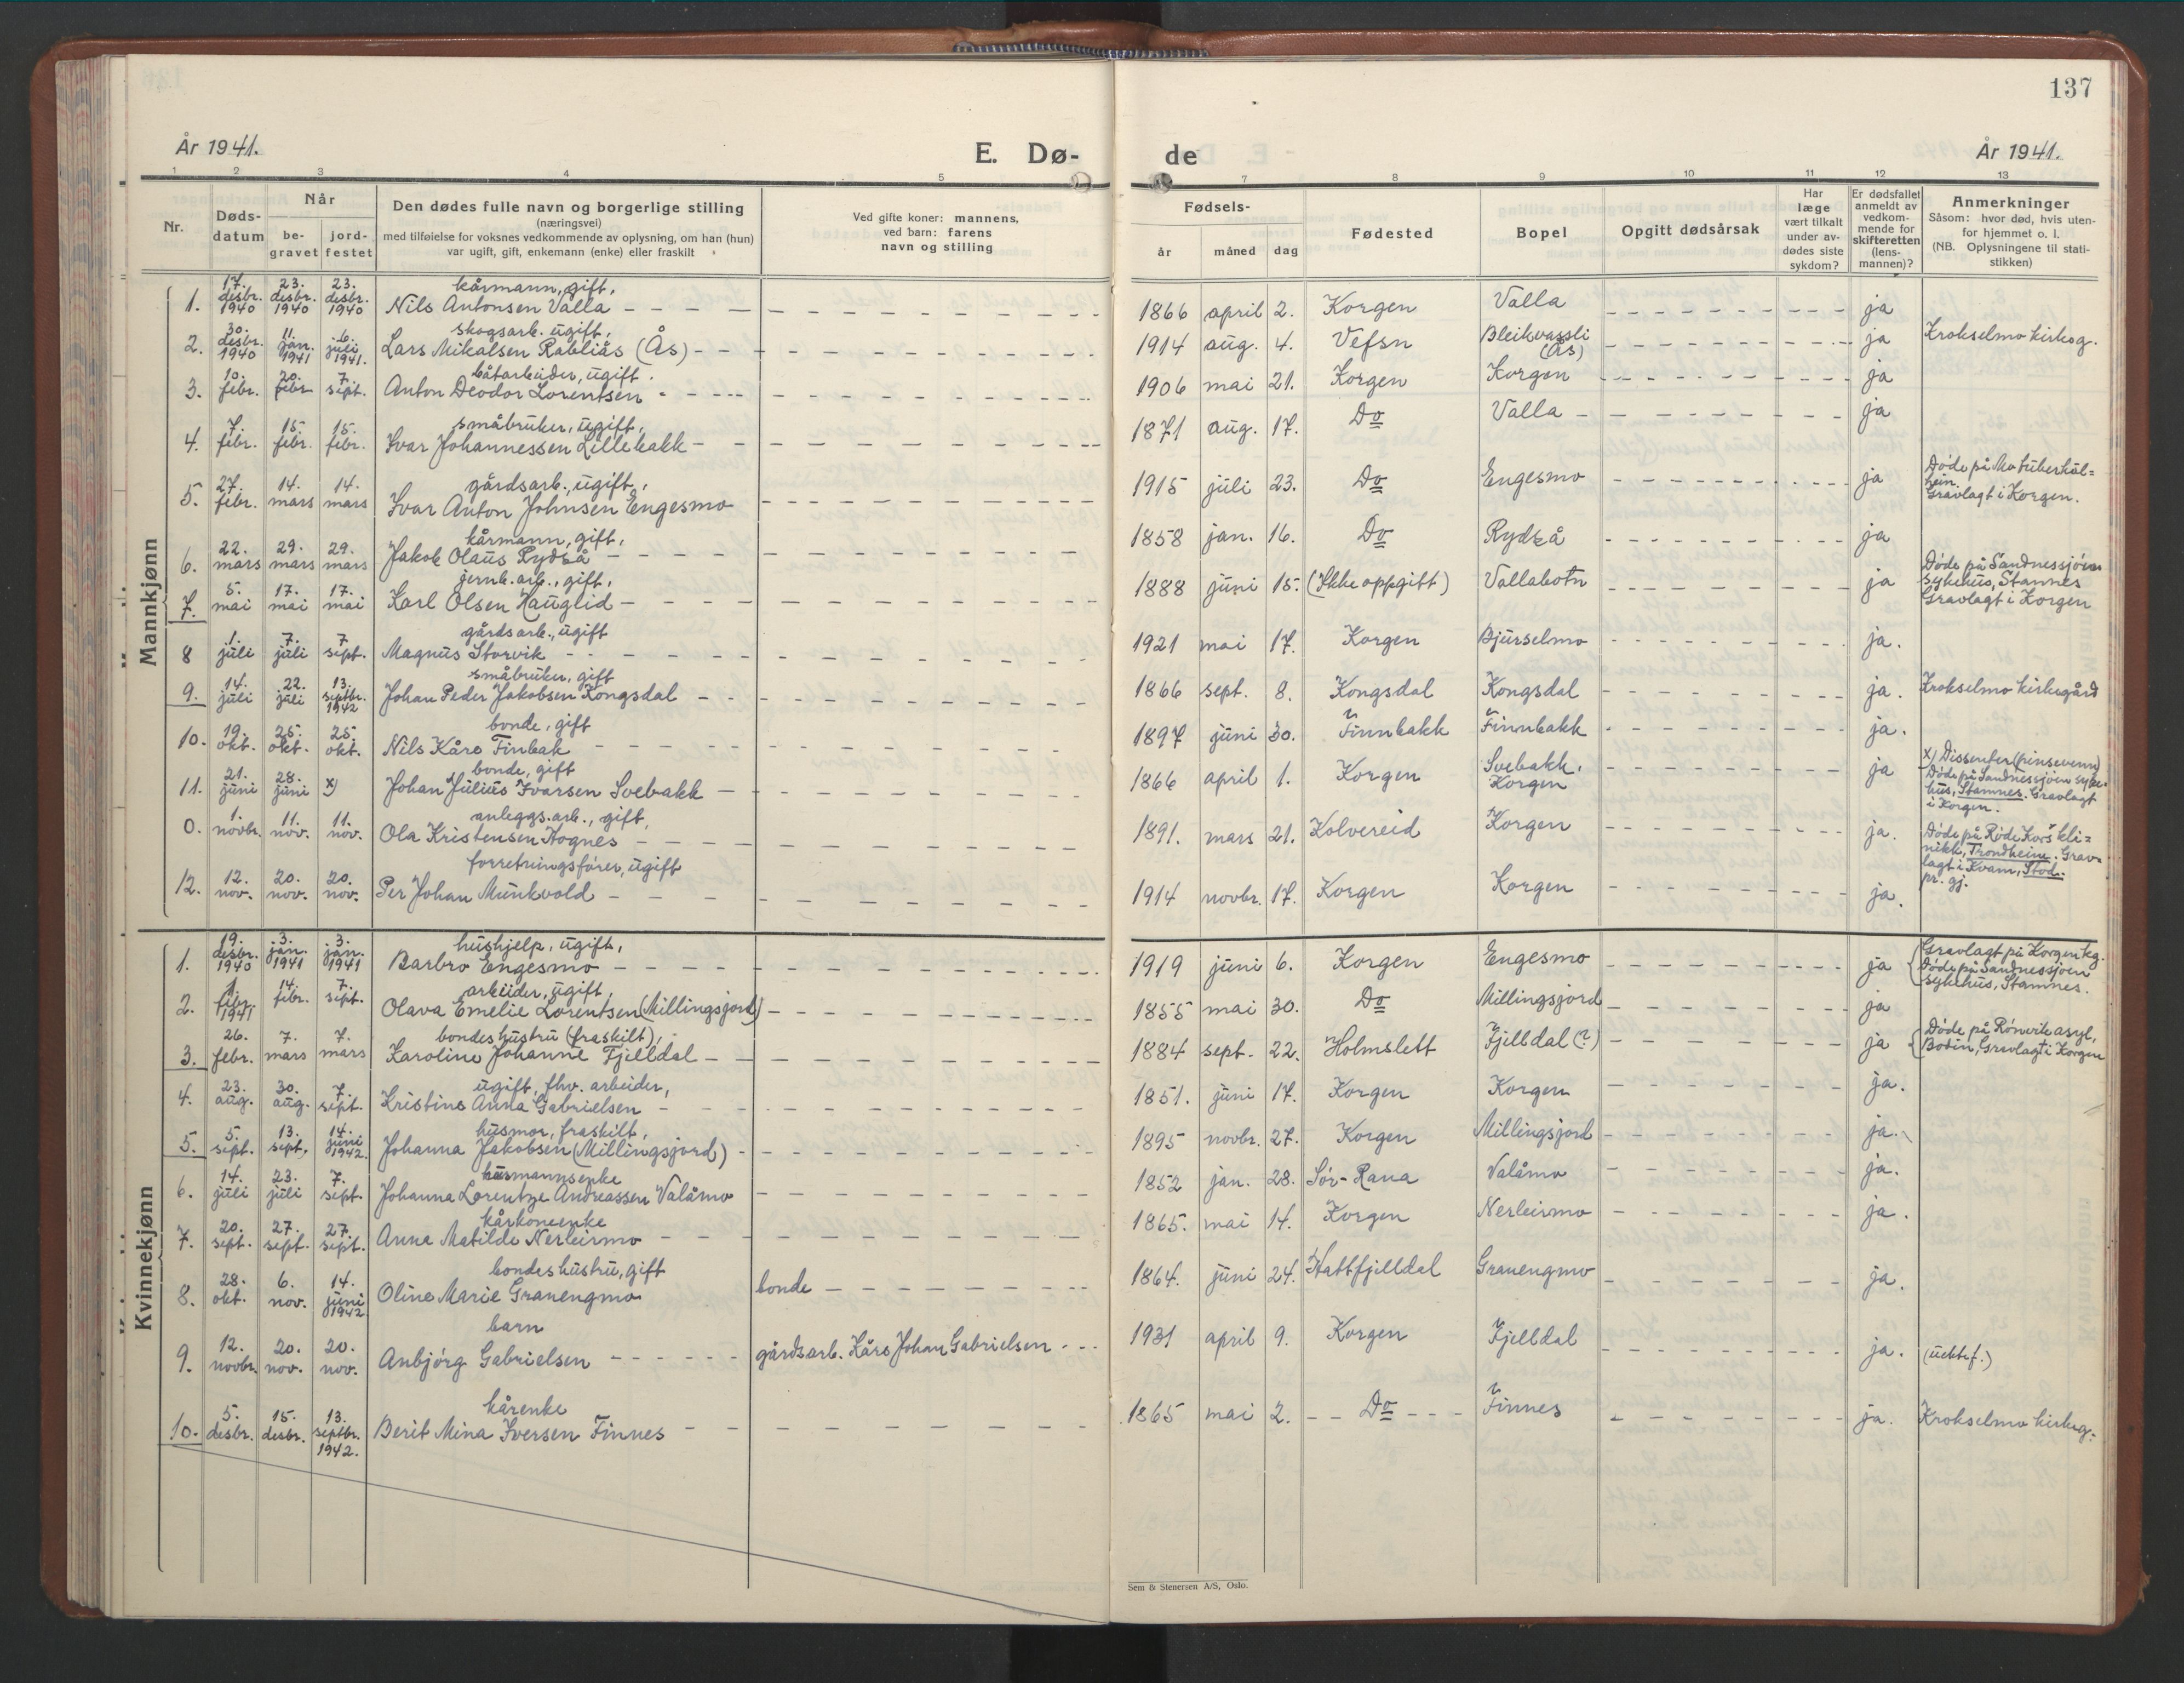 137
År 1941. E. Dø- de År 1941.
1 2 3 4 5 7 8 9 10 11 12 13
Nr.
Døds-
datum
Når
be-
gravet
jord-
festet
Den dødes fulle navn og borgerlige stilling
(næringsvei)
med tilføielse for voksnes vedkommende av oplysning, om han (hun)
var ugift, gift, enkemann (enke) eller fraskilt
Ved gifte koner: mannens,
ved barn: farens
navn og stilling
Fødsels-
år måned dag
Fødested
Bopel
Opgitt dødsårsak
Har
læge
vært tilkalt
under av-
dødes siste
sykdom?
Er dødsfallet
anmeldt av
vedkom-
mende for
skifteretten
(lens-
mannen)?
Anmerkninger
Såsom: hvor død, hvis uten-
for hjemmet o. l.
(NB. Oplysningene til stati-
stikken)
Mannkjønn
kårmann, gift,
1. 17. desbr. 1940 23. desbr. 1940 23. desbr. 1940 Nils Antonsen Valla 1866 april 2. Korgen Valla ja
skogsarb. ugift,
2. 30. desbr. 1940 11. jan. 1941 6. juli 1941. Lars Mikalsen Rabliås (Ås) 1914 aug. 4. Vefsn Bleikvassli (Ås) ja Krokselmo kirkeg.
båtarbeider, ugift.
3. 10. febr. 20. febr 7. sept. Anton Deodor Lorentsen 1906 mai 21. Korgen Korgen ja
småbruker, ugift,
4. 7. febr. 15. febr. 15. febr. Ivar Johannessen Lillebakk 1871 aug. 17. Do Valla ja
gårdsarb., ugift,
5. 27. febr. 14. mars 14. mars Ivar Anton Johnsen Engesmo 1915 juli 23. Do Engesmo ja Døde på Mo tuberkul=
hein.
Gravlagt i Korgen.
kårmann, gift,
6. 22. mars 29. mars 29. mars Jakob Olaus Rydså 1858 jan. 16. Do Rydså ja
jernb. arb., gift,
7. 5. mai 17. mai 17. mai Karl Olsen Hauglid 1888 juni 15. (Ikke oppgitt) Vallabotn ja Døde på Sandnessjøen
sykehus, Stamnes
Gravlagt i Korgen
gårdsarb., ugift
8 1. juli 7. juli 7 sept. Magnus Storvik 1921 mai 17. Korgen Bjurselmo ja.
småbruker, gift
9. 14. juli 22. juli 13. septbr. 1942 Johan Peder Jakobsen Kongsdal 1866 sept. 8. Kongsdal Kongsdal ja. Krokselmo kirkegård
bonde, gift
10. 19. okt. 25. okt. 25. okt. Nils Kåre Finbak 1897 juni 30. Finnbakk Finnbakk ja.
bonde, gift
11. 21. juni 28. juni x) Johan Julius Ivarsen Svebakk 1866 april 1. Korgen Svebakk, Korgen ja x) Dissenter (pinsevenn)
Døde på Sandnessjøen syke-
hus, Stamnes. Gravlagt
i Korgen.
anleggs.arb., gift,
0. 1. novbr. 11. nov. 11. nov. Ola Kristensen Aagnes 1891. mars 21. Kolvereid Korgen ja. Døde på Røde Kors kli=
nikk, Trondheim. Grav=
lagt i Kvam, Stod.
pr. gj.
forretningsfører, ugift
12. 12. nov. 20. nov. 20. nov. Per Johan Munkvold 1914 novbr. 17. Korgen Korgen ja.
Kvinnekjønn
hushjelp, ugift,
1. 19. desbr. 1940 3. jan. 1941 3. jan. 1941 Barbro Engesmo 1919 juni 6. Korgen Engesmo ja Gravlagt på Korgen kg.
Døde på Sandnessjøen
sykehus, Stamnes.
arbeider, ugift,
2. 1. febr. 1941 14. febr. 7. sept. Olava Emelie Lorentsen (Millingsjord) 1855 mai 30. Do Millingsjord ja
bondeshustru (fraskilt),
3. 26. febr. 7. mars 7. mars Karoline Johanne Fjelldal 1884 sept. 22. Holmslett Fjelldal (?) ja Døde på Rønvik asyl,
Bodin, Gravlagt i Korgen
ugift, fhv. arbeider,
4. 23. aug. 30. aug. 7. sept. Kristine Anna Gabrielsen 1851. juni 17. Korgen Korgen ja.
husmor, fraskilt,
5. 5. sept. 13. sept. 14. juni 1942. Johanna Jakobsen (Millingsjord) 1895 novbr. 27. Korgen Millingsjord ja.
husmannsenke
6. 14. juli 23. juli 7. sept. Johanna Lorentze Andreassen Valåmo 1852 jan. 28. Sør-Rana Valåmo ja.
kårkoneenke
7. 20. sept. 27. sept. 27. sept. Anna Matilde Nerleirmo 1865. mai 14. Korgen Nerleirmo ja.
bondeshustru, gift
8. 28. okt. 6. nov. 14. juni 1942 Oline Marie Granengmo bonde 1864. juni 24. Hattfjelldal Granengmo ja.
barn
9. 12. novbr. 20. nov. 20. nov. Anbjørg Gabrielsen gårdsarb. Kåre Johan Gabrielsen 1931 april 9. Korgen Fjelldal ja. (uektef.)
kårenke
10. 5. desbr. 15. desbr. 13. septbr. 1942. Berit Mina Iversen Finnes 1865 mai 2. Do Finnes ja. Krokselmo kirkeg.
Sem & Stenersen A/S, Oslo.